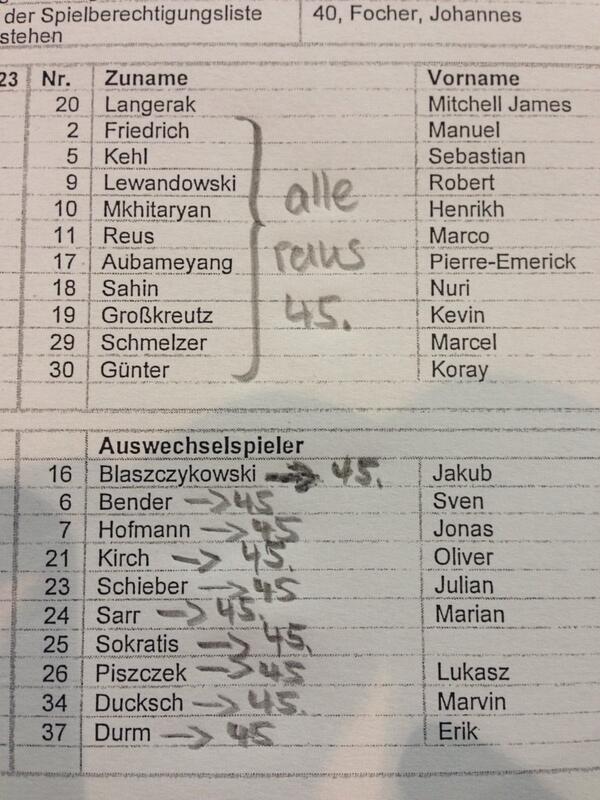 der Spielberechtigungsliste 40, Focher, Johannes
stehen
23 Nr. Zuname Vorname
20 Langerak Mitchell James
2 Friedrich Manuel
5 Kehl Sebastian
9 Lewandowski alle Robert
10 Mkhitaryan Henrikh
11 Reus Marco
17 Aubameyang raus Pierre-Emerick
18 Sahin Nuri
19 Großkreutz 45. Kevin
29 Schmelzer Marcel
30 Günter Koray
Auswechselspieler
16 Blaszczykowski → 45. Jakub
6 Bender → 45 Sven
7 Hofmann → 45 Jonas
21 Kirch → 45. Oliver
23 Schieber → 45 Julian
24 Sarr → 45. Marian
25 Sokratis → 45.
26 Piszczek → 45 Lukasz
34 Ducksch → 45. Marvin
37 Durm → 45 Erik